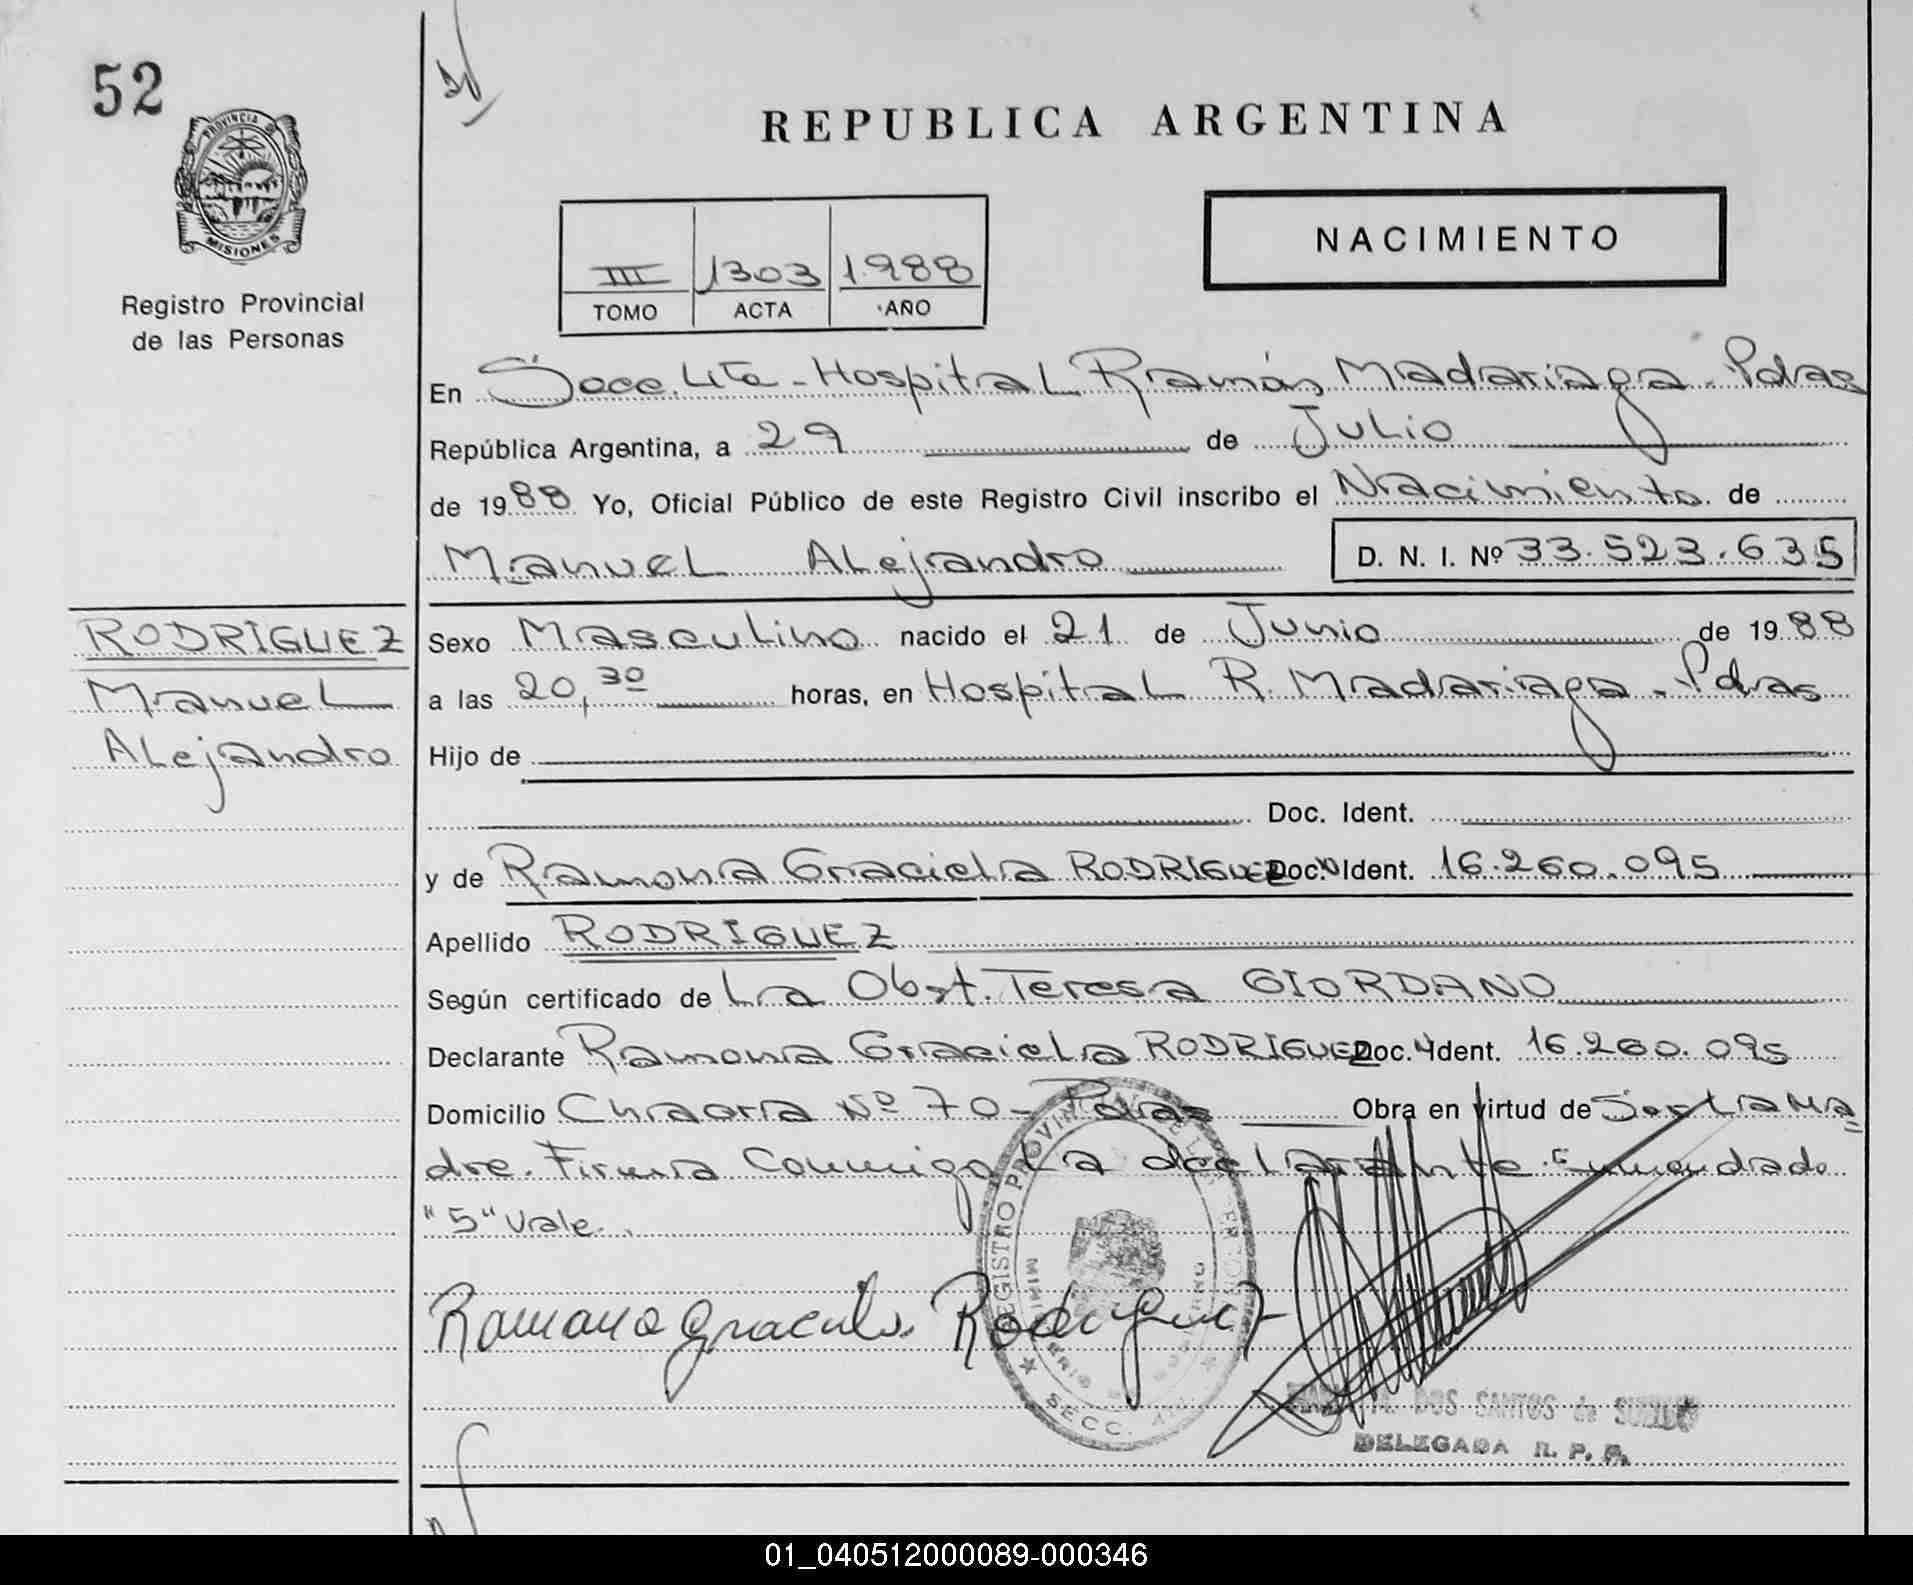 52
PROVINCIA DE
MISIONES
Registro Provincial
de las Personas
REPUBLICA ARGENTINA
III 1303 1.988
TOMO ACTA AÑO
NACIMIENTO
En Secc. 4ta - Hospital Ramón Madariaga. Pdas
República Argentina, a 29 de Julio
de 1988 Yo, Oficial Público de este Registro Civil inscribo el Nacimiento de
Manuel Alejandro D. N. I. Nº 33.523.635
RODRIGUEZ
Manuel
Alejandro
Sexo Masculino nacido el 21 de Junio de 1988
a las 20,30 horas, en Hospital R. Madariaga - Pdas
Hijo de
Doc. Ident.
y de Ramona Graciela RODRIGUEZ Doc. Ident. 16.260.095
Apellido RODRIGUEZ
Según certificado de La Obst. Teresa GIORDANO
Declarante Ramona Graciela RODRIGUEZ Doc. Ident. 16.260.095
Domicilio Chacra Nº 70 - Pdas Obra en virtud de Ser la Ma-
dre. Firma Conmigo la declarante. Enmendado
"5" Vale.
Ramona Graciela Rodriguez
REGISTRO PROVINCIAL DE LAS PERSONAS
MINISTERIO DE GOBIERNO
SECC. 4ta.
DOS SANTOS de
DELEGADA R. P. P.
01_040512000089-000346